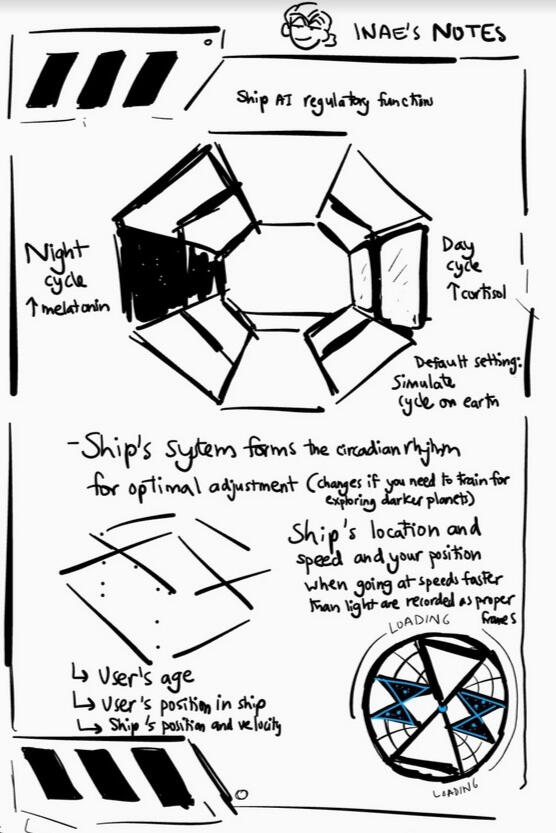 INAE'S NOTES
Ship AI regulatory functions
Night
cycle
↑melatonin
Day
cycle
↑cortisol
Default setting:
Simulate
cycle on earth
-Ship's system forms the circadian rhythm
for optimal adjustment (changes if you need to train for
exploring darker planets)
Ship's location and
speed and your position
when going at speeds faster
than light are recorded as proper
frames
LOADING
↳ User's age
↳ User's position in ship
↳ Ship's position and velocity
LOADING